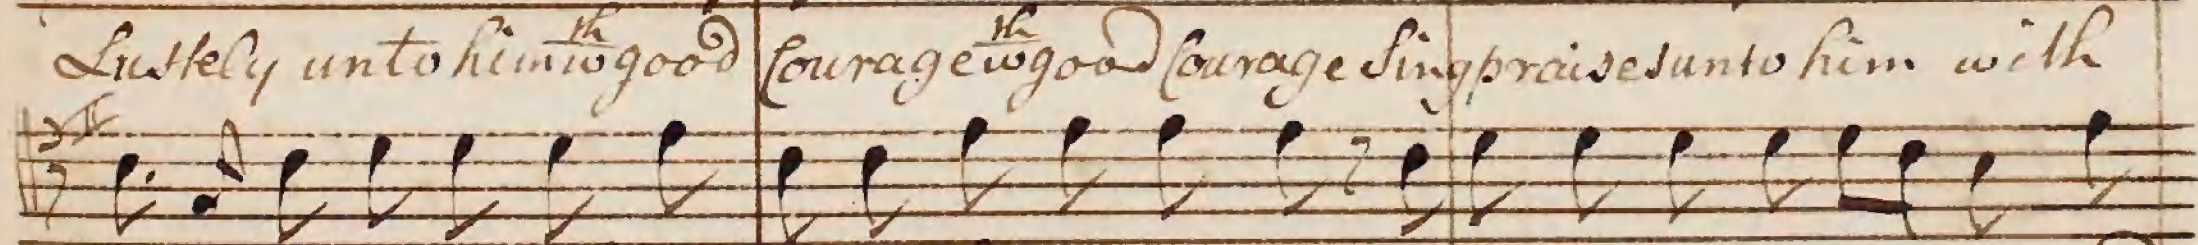 Lustely unto him wth good Courage wth good Courage Sing praises unto him with